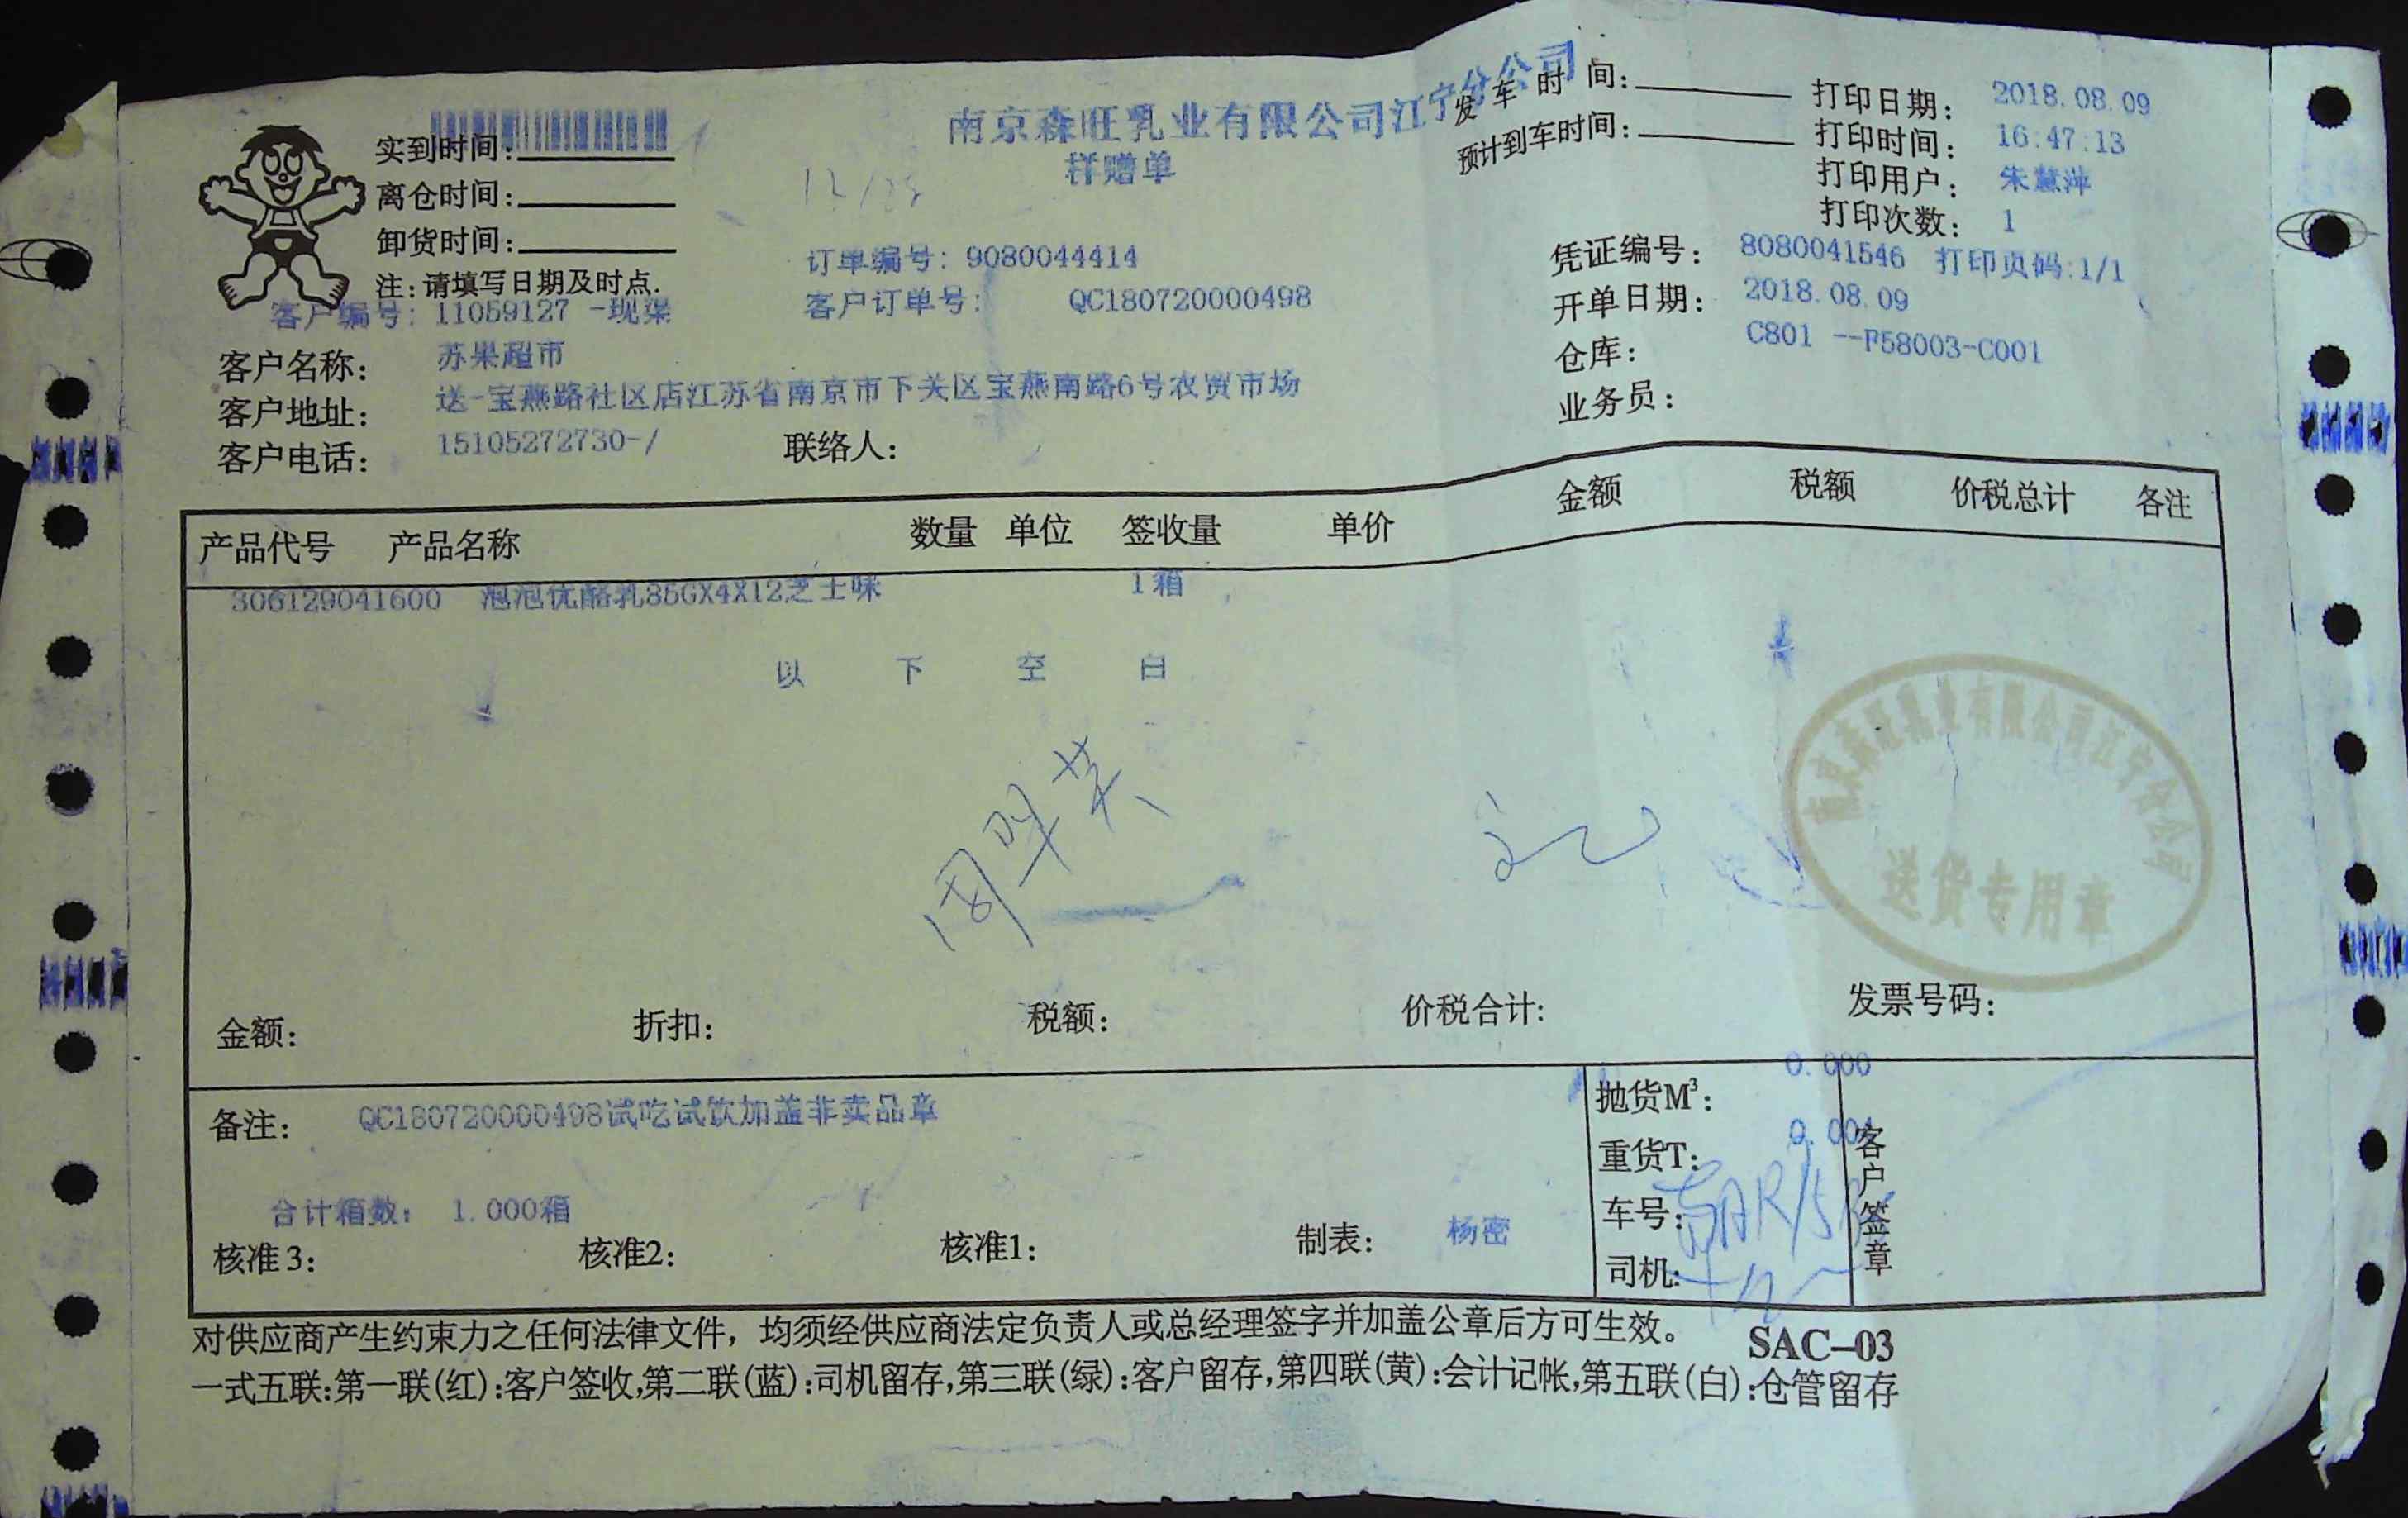 南京森旺乳业有限公司江宁分公司
样赠单
实到时间:
离仓时间:
卸货时间:
注:请填写日期及时点.
发车时间:
预计到车时间:
打印日期: 2018.08.09
打印时间: 16:47:13
打印用户: 朱慧萍
打印次数: 1
订单编号: 9080044414
凭证编号: 8080041546 打印页码:1/1
客户编号: 11059127 -现渠
客户订单号: QC180720000498
开单日期: 2018.08.09
客户名称: 苏果超市
仓库: C801 --F58003-C001
客户地址: 送-宝燕路社区店江苏省南京市下关区宝燕南路6号农贸市场
业务员:
客户电话: 15105272730-/ 联络人:
产品代号 产品名称 数量 单位 签收量 单价 金额 税额 价税总计 各注
306129041600 泡泡优酪乳85GX4X12芝士味 1箱
以 下 空 白
南京森旺乳业有限公司江宁分公司
送货专用章
金额: 折扣: 税额: 价税合计: 发票号码:
备注: QC180720000498试吃试饮加盖非卖品章
抛货M³: 0.000
重货T:
车号:
司机:
客户签章
合计箱数: 1.000箱
核准3: 核准2: 核准1: 制表: 杨密
对供应商产生约束力之任何法律文件，均须经供应商法定负责人或总经理签字并加盖公章后方可生效。 SAC-03
一式五联:第一联(红):客户签收,第二联(蓝):司机留存,第三联(绿):客户留存,第四联(黄):会计记帐,第五联(白):仓管留存